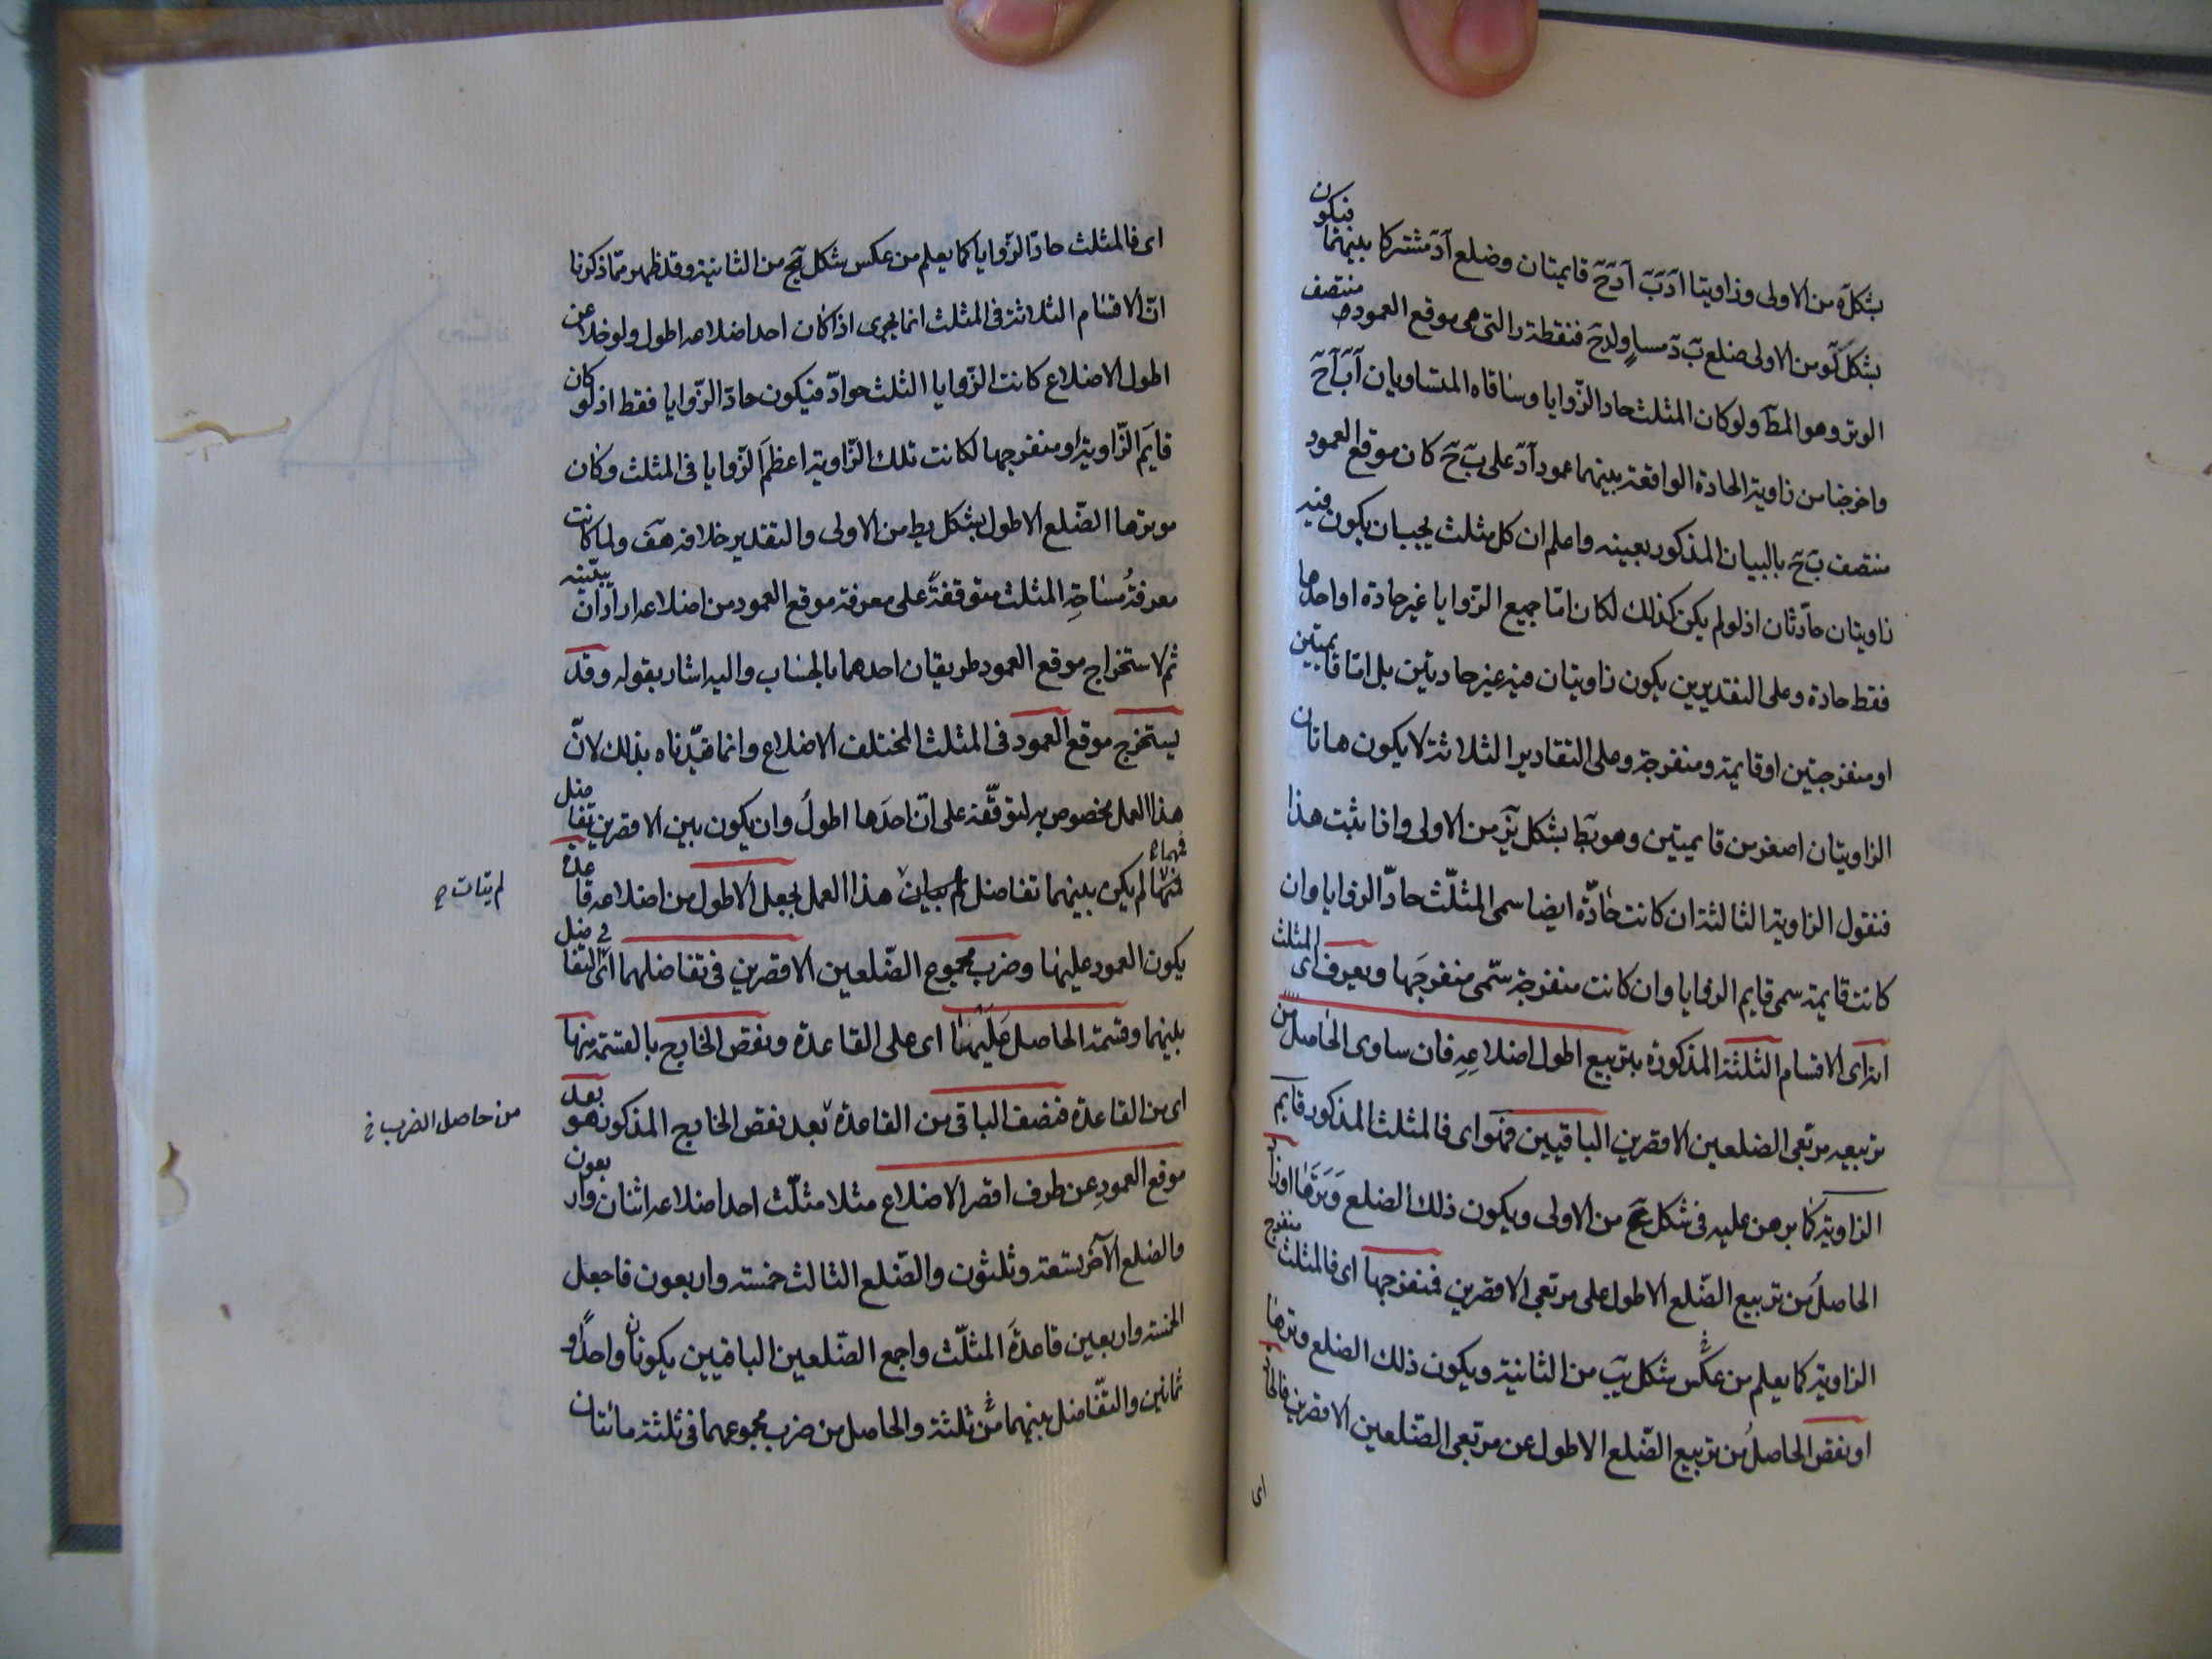 بشكل ه من الاولى وزاويتا ادب ادح قايمتان وضلع اد مشتركا بينهما فيكون
بشكل كو من الاولى ضلع ب د مساو لدح فنقطة د التى هى موقع العمود منتصف
الوتر وهو المط ولو كان المثلث حاد الزوايا وساقاه المتساويان اب اح
واخرجنا من زاويته الحادة الواقعة بينهما عمود اد على ب ح كان موقع العمود
منتصف ب ح بالبيان المذكور بعينه واعلم ان كل مثلث يجب ان يكون فيه
زاويتان حادتان اذ لو لم يكن كذلك لكان اما جميع الزوايا غير حادة او احدها
فقط حادة وعلى التقديرين يكون زاويتان فيه غير حادتين بل اما قايمتين
او منفرجتين او قايمة ومنفرجة وعلى التقادير الثلاثة لا يكون هاتان
الزاويتان اصغر من قايمتين وهو بط بشكل يز من الاولى واذا ثبت هذا
فنقول الزاوية الثالثة ان كانت حادّة ايضا سمى المثلّث حادّ الزوايا وان
كانت قايمة سمى قايم الزوايا وان كانت منفرجة سمّى منفرجَها ويعرف اى المثلث
انه اى الاقسام الثلثة المذكورة بتربيع اطول اضلاعِهِ فان ساوى الحاصل من
تربيعه مربّعى الضلعين الاقصرين الباقيين فهو اى فالمثلث المذكور قايم
الزاوية كما برهن عليه فى شكل مح من الاولى ويكون ذلك الضلع وَتَرَها او زاد
الحاصلُ من تربيع الضّلع الاطول على مربّعى الاقصرين فمنفرجها اى فالمثلث منفرج
الزاوية كما يعلم من عكس شكل يب من الثانية ويكون ذلك الضلع وترها
او نقص الحاصلُ من تربيع الضّلع الاطول عن مربّعى الضّلعين الاقصرين فالحادّ
اى
اى فالمثلث حادّ الزّوايا كما يعلم من عكس شكل يج من الثانية وقد ظهر ممّا ذكرنا
انّ الاقسام الثلاثة فى المثلث انما يجرى اذا كان احد اضلاعه اطول ولو خلا عن
اطول الاضلاع كانت الزّوايا الثلث حوادّ فيكون حادّ الزّوايا فقط اذ لو كان
قايَم الزّاوية او منفرجها لكانت تلك الزّاوية اعظمَ الزّوايا فى المثلث وكان
موترها الضّلع الاطول بشكل يط من الاولى والتقدير خلافه هف ولما كانت
معرفةُ مساحةِ المثلث متوقفةً على معرفة موقع العمود من اضلاعه اراد ان يبيّنه
ثم لاستخراج موقع العمود طريقان احدهما بالحساب واليه اشار بقوله وقد
يستخرج موقع العمود فى المثلث المختلف الاضلاع وانما قيّدناه بذلك لانّ
هذا العمل مخصوص به لتوقّفه على انّ احدَها اطولُ وان يكون بين الاقصرين تفاضل
فمهما لم يكن بينهما تفاضل هذا العمل بجعل الاطول من اضلاعه قاعدة
لم يتات
يكون العمود عليها وضرب مجموع الضّلعين الاقصرين فى تفاضلهما اى التفاضل
بينهما وقسمة الحاصل عليها اى على القاعدة ونقص الخارج بالقسمة منها
اى من القاعدة فنصف الباقى من القاعدة بعد نقص الخارج المذكور هو بعد
من حاصل الضرب فى
موقع العمودِ عن طرف اقصر الاضلاع مثلا مثلّث احد اضلاعه اثنان واربعون
والضلع الآخر تسعة وثلثون والضّلع الثالث خمسة واربعون فاجعل
الخمسة واربعين قاعدةَ المثلّث واجمع الضّلعين الباقيين يكونان واحدًا و
ثمانين والتّفاضل بينهما ثلثة والحاصل من ضرب مجموعهما فى ثلثة مائتان